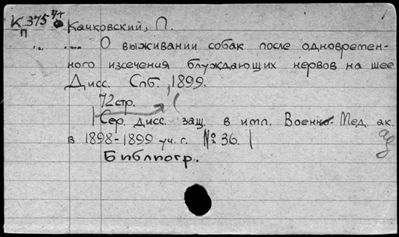 К 375 Качковский, П.
п
О выживании собак после одновремен-
ного изсечения блуждающих нервов на шее
Дисс. Спб., 1899.
72стр.
(Сер. дисс. защ. в имп. Военно-Мед. ак.
в 1898-1899 уч. г. № 36.)
Библиогр.